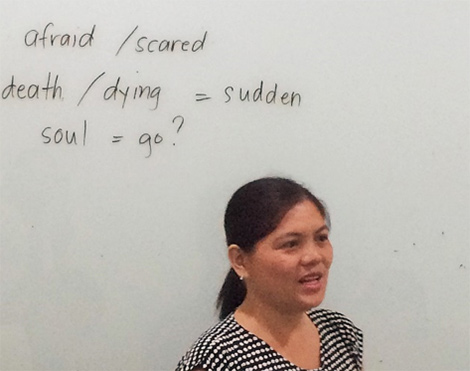 afraid / scared
death / dying = sudden
soul = go?